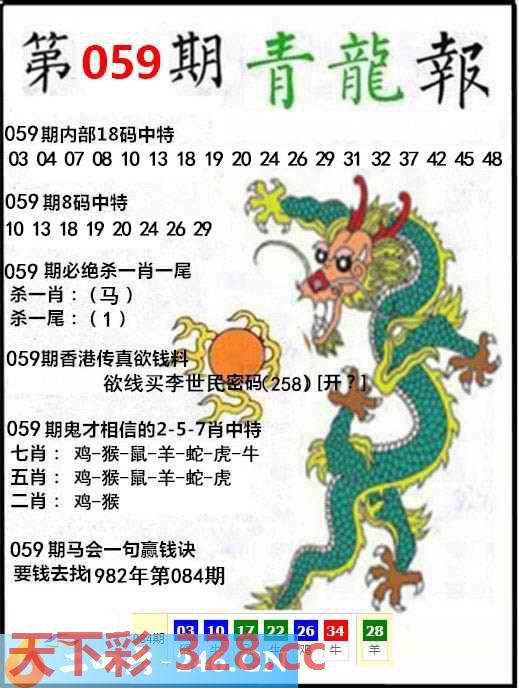 第059期 青龍報
059期内部18码中特
03 04 07 08 10 13 18 19 20 24 26 29 31 32 37 42 45 48
059期8码中特
10 13 18 19 20 24 26 29
059 期必绝杀一肖一尾
杀一肖：（马）
杀一尾：（1）
059期香港传真欲钱料
欲线买李世民密码(258)[开？]
059期鬼才相信的2-5-7肖中特
七肖： 鸡-猴-鼠-羊-蛇-虎-牛
五肖： 鸡-猴-鼠-羊-蛇-虎
二肖： 鸡-猴
059期马会一句赢钱诀
要钱去找1982年第084期
084期 03 10 17 22 26 34 28
牛 鸡 羊
天下彩-328.cc